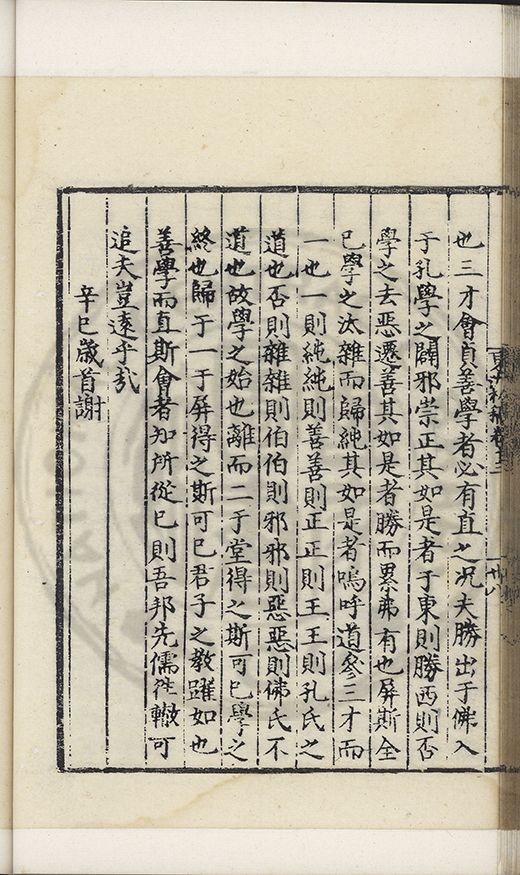 也三才會貞善學者必有直之況夫勝出于佛入
于孔學之闢邪崇正其如是者于東則勝西則否
學之去惡遷善其如是者勝而累弗有也屏斯全
已學之汰雜而歸純其如是者嗚呼道參三才而
一也一則純純則善善則正正則王王則孔氏之
道也否則雜雜則伯伯則邪邪則惡惡則佛氏不
道也故學之始也離而二于堂得之斯可已學之
終也歸于一于屏得之斯可已君子之教躍如也
善學而直斯會者知所從已則吾邦先儒徃轍可
追夫豈遠乎哉
辛巳歲首謝